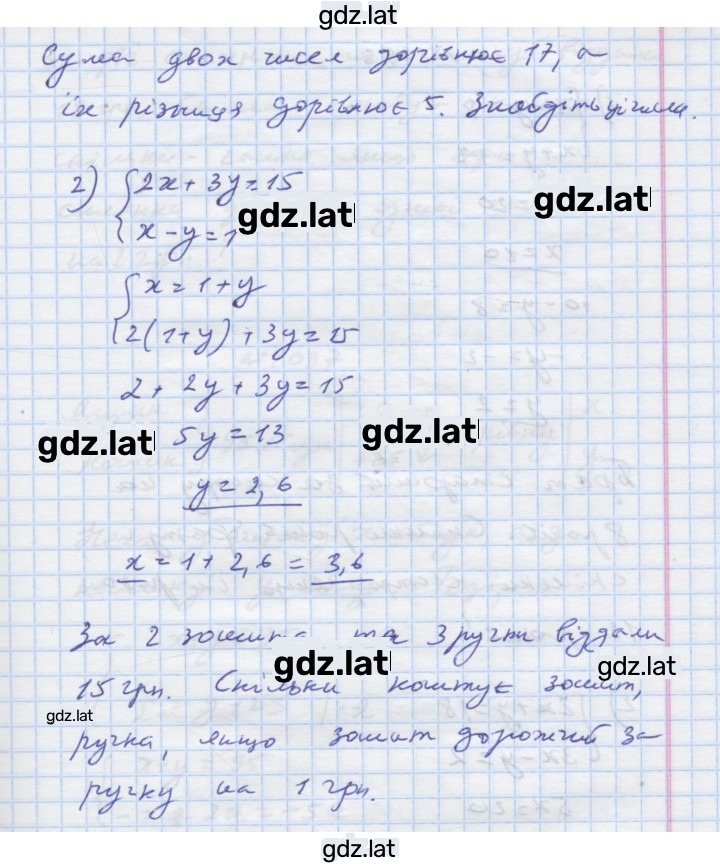 gdz.lat
Сума двох чисел дорівнює 17, а
gdz.lat
їх різниця дорівнює 5. Знайдіть ці числа.
2) { 2x + 3y = 15
gdz.lat gdz.lat
x - y = 1
{ x = 1 + y
2(1+y) + 3y = 15
2 + 2y + 3y = 15
gdz.lat 5y = 13 gdz.lat
y = 2,6
x = 1 + 2,6 = 3,6
За 2 зошита та 3 ручки віддали
gdz.lat gdz.lat
15 грн. Скільки коштує зошит,
gdz.lat
ручка, якщо зошит дорожчий за
ручку на 1 грн.
gdz.lat